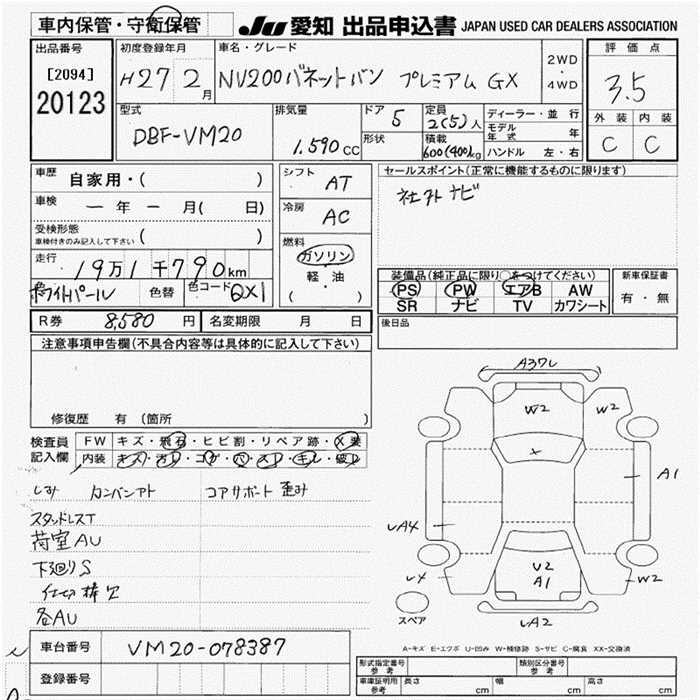 車内保管・守衛保管
JU 愛知 出品申込書 JAPAN USED CAR DEALERS ASSOCIATION
出品番号
[2094]
20123
初度登録年月
H27 2月
車名・グレード
NV200バネットバン プレミアム GX
2WD
・
4WD
評価点
3.5
外装 内装
C C
型式
DBF-VM20
排気量
1.590 CC
ドア 5
形状
定員
2(5)人
積載
600(400)kg
ディーラー・並行
モデル年式 年
ハンドル 左・右
車歴 自家用・( )
車検 ー年ー月( 日)
受検形態
車検付きのみ記入して下さい ( )
走行 19万1千790km
色 ホワイトパール 色替 色コード QX1
シフト AT
冷房 AC
燃料
ガソリン
軽・油
( )
セールスポイント(正常に機能するものに限ります)
社外ナビ
装備品(純正品に限り○をつけてください)
PS PW エアB AW
SR ナビ TV カワシート
新車保証書
有・無
R券 8,580円 名変期限 月 日
後日品
注意事項申告欄(不具合内容等は具体的に記入して下さい)
修復歴 有 (箇所 )
検査員
記入欄
FW キズ・飛石・ヒビ割・リペア跡・X要
内装 キズ・汚レ・コゲ・穴・スレ・モレ・破レ
しみ カンバンアト コアサポート歪み
スタッドレスT
荷室AU
下廻りS
仕切棒欠
各AU
A37L
W2
W2
×
A1
UA4
U2
A1
U4
W2
UA2
スペア
A-キズ E-エクボ U-凹み W-補修跡 S-サビ C-腐食 XX-交換済
車台番号 VM20-078387
登録番号
形式指定番号 参考
類別区分番号 参考
車庫証明用 参考
長さ cm 幅 cm 高さ cm